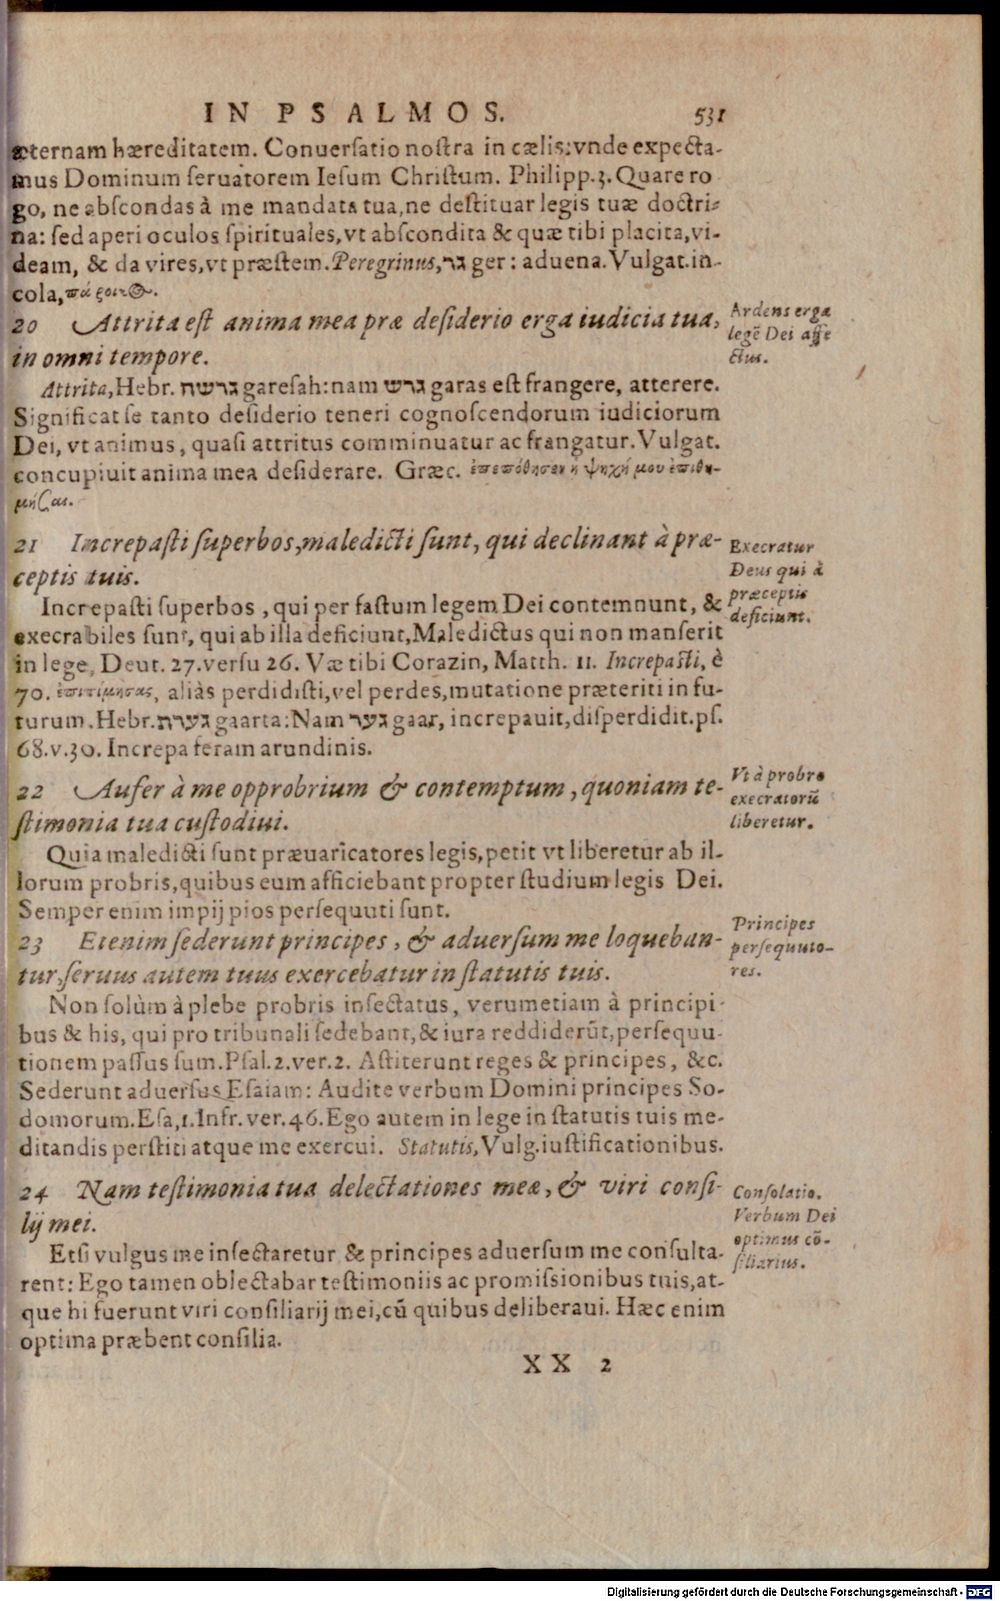 IN PSALMOS. 531
æternam hæreditatem. Conuersatio nostra in cælis: vnde expecta-
mus Dominum seruatorem Iesum Christum. Philipp. 3. Quare ro
go, ne abscondas à me mandata tua, ne destituar legis tuæ doctri-
na: sed aperi oculos spirituales, vt abscondita & quæ tibi placita, vi-
deam, & da vires, vt præstem. Peregrinus, גר ger: aduena. Vulgat. in-
cola, πάροικος.
20 Attrita est anima mea præ desiderio erga iudicia tua,
in omni tempore.
Ardens erga
legẽ Dei affe
ctus.
Attrita, Hebr. גרשה garesah: nam גרש garas est frangere, atterere.
Significat se tanto desiderio teneri cognoscendorum iudiciorum
Dei, vt animus, quasi attritus comminuatur ac frangatur. Vulgat.
concupiuit anima mea desiderare. Græc. ἐπεπόθησεν ἡ ψυχή μου ἐπιθυ-
μῆσαι.
21 Increpasti superbos, maledicti sunt, qui declinant à præ-
ceptis tuis.
Execratur
Deus qui à
præceptis
deficiunt.
Increpasti superbos, qui per fastum legem Dei contemnunt, &
execrabiles sunt, qui ab illa deficiunt, Maledictus qui non manserit
in lege, Deut. 27. versu 26. Væ tibi Corazin, Matth. 11. Increpasti, è
70. ἐπιτίμησας, aliàs perdidisti, vel perdes, mutatione præteriti in fu-
turum. Hebr. גערת gaarta: Nam גער gaar, increpauit, disperdidit. ps.
68. v. 30. Increpa feram arundinis.
22 Aufer à me opprobrium & contemptum, quoniam te-
stimonia tua custodiui.
Vt à probro
execratorũ
liberetur.
Quia maledicti sunt præuaricatores legis, petit vt liberetur ab il-
lorum probris, quibus eum afficiebant propter studium legis Dei.
Semper enim impij pios persequuti sunt.
23 Etenim sederunt principes, & aduersum me loqueban-
tur, seruus autem tuus exercebatur in statutis tuis.
Principes
persequuto-
res.
Non solùm à plebe probris insectatus, verumetiam à principi-
bus & his, qui pro tribunali sedebant, & iura reddiderũt, persequu-
tionem passus sum. Psal. 2. ver. 2. Astiterunt reges & principes, &c.
Sederunt aduersus Esaiam: Audite verbum Domini principes So-
domorum. Esa, 1. Infr. ver. 46. Ego autem in lege in statutis tuis me-
ditandis perstiti atque me exercui. Statutis, Vulg. iustificationibus.
24 Nam testimonia tua delectationes meæ, & viri consi-
lij mei.
Consolatio.
Verbum Dei
optimus cõ-
siliarius.
Etsi vulgus me insectaretur & principes aduersum me consulta-
rent: Ego tamen oblectabar testimoniis ac promissionibus tuis, at-
que hi fuerunt viri consiliarij mei, cũ quibus deliberaui. Hæc enim
optima præbent consilia.
XX 2
Digitalisierung gefördert durch die Deutsche Forschungsgemeinschaft - DFG